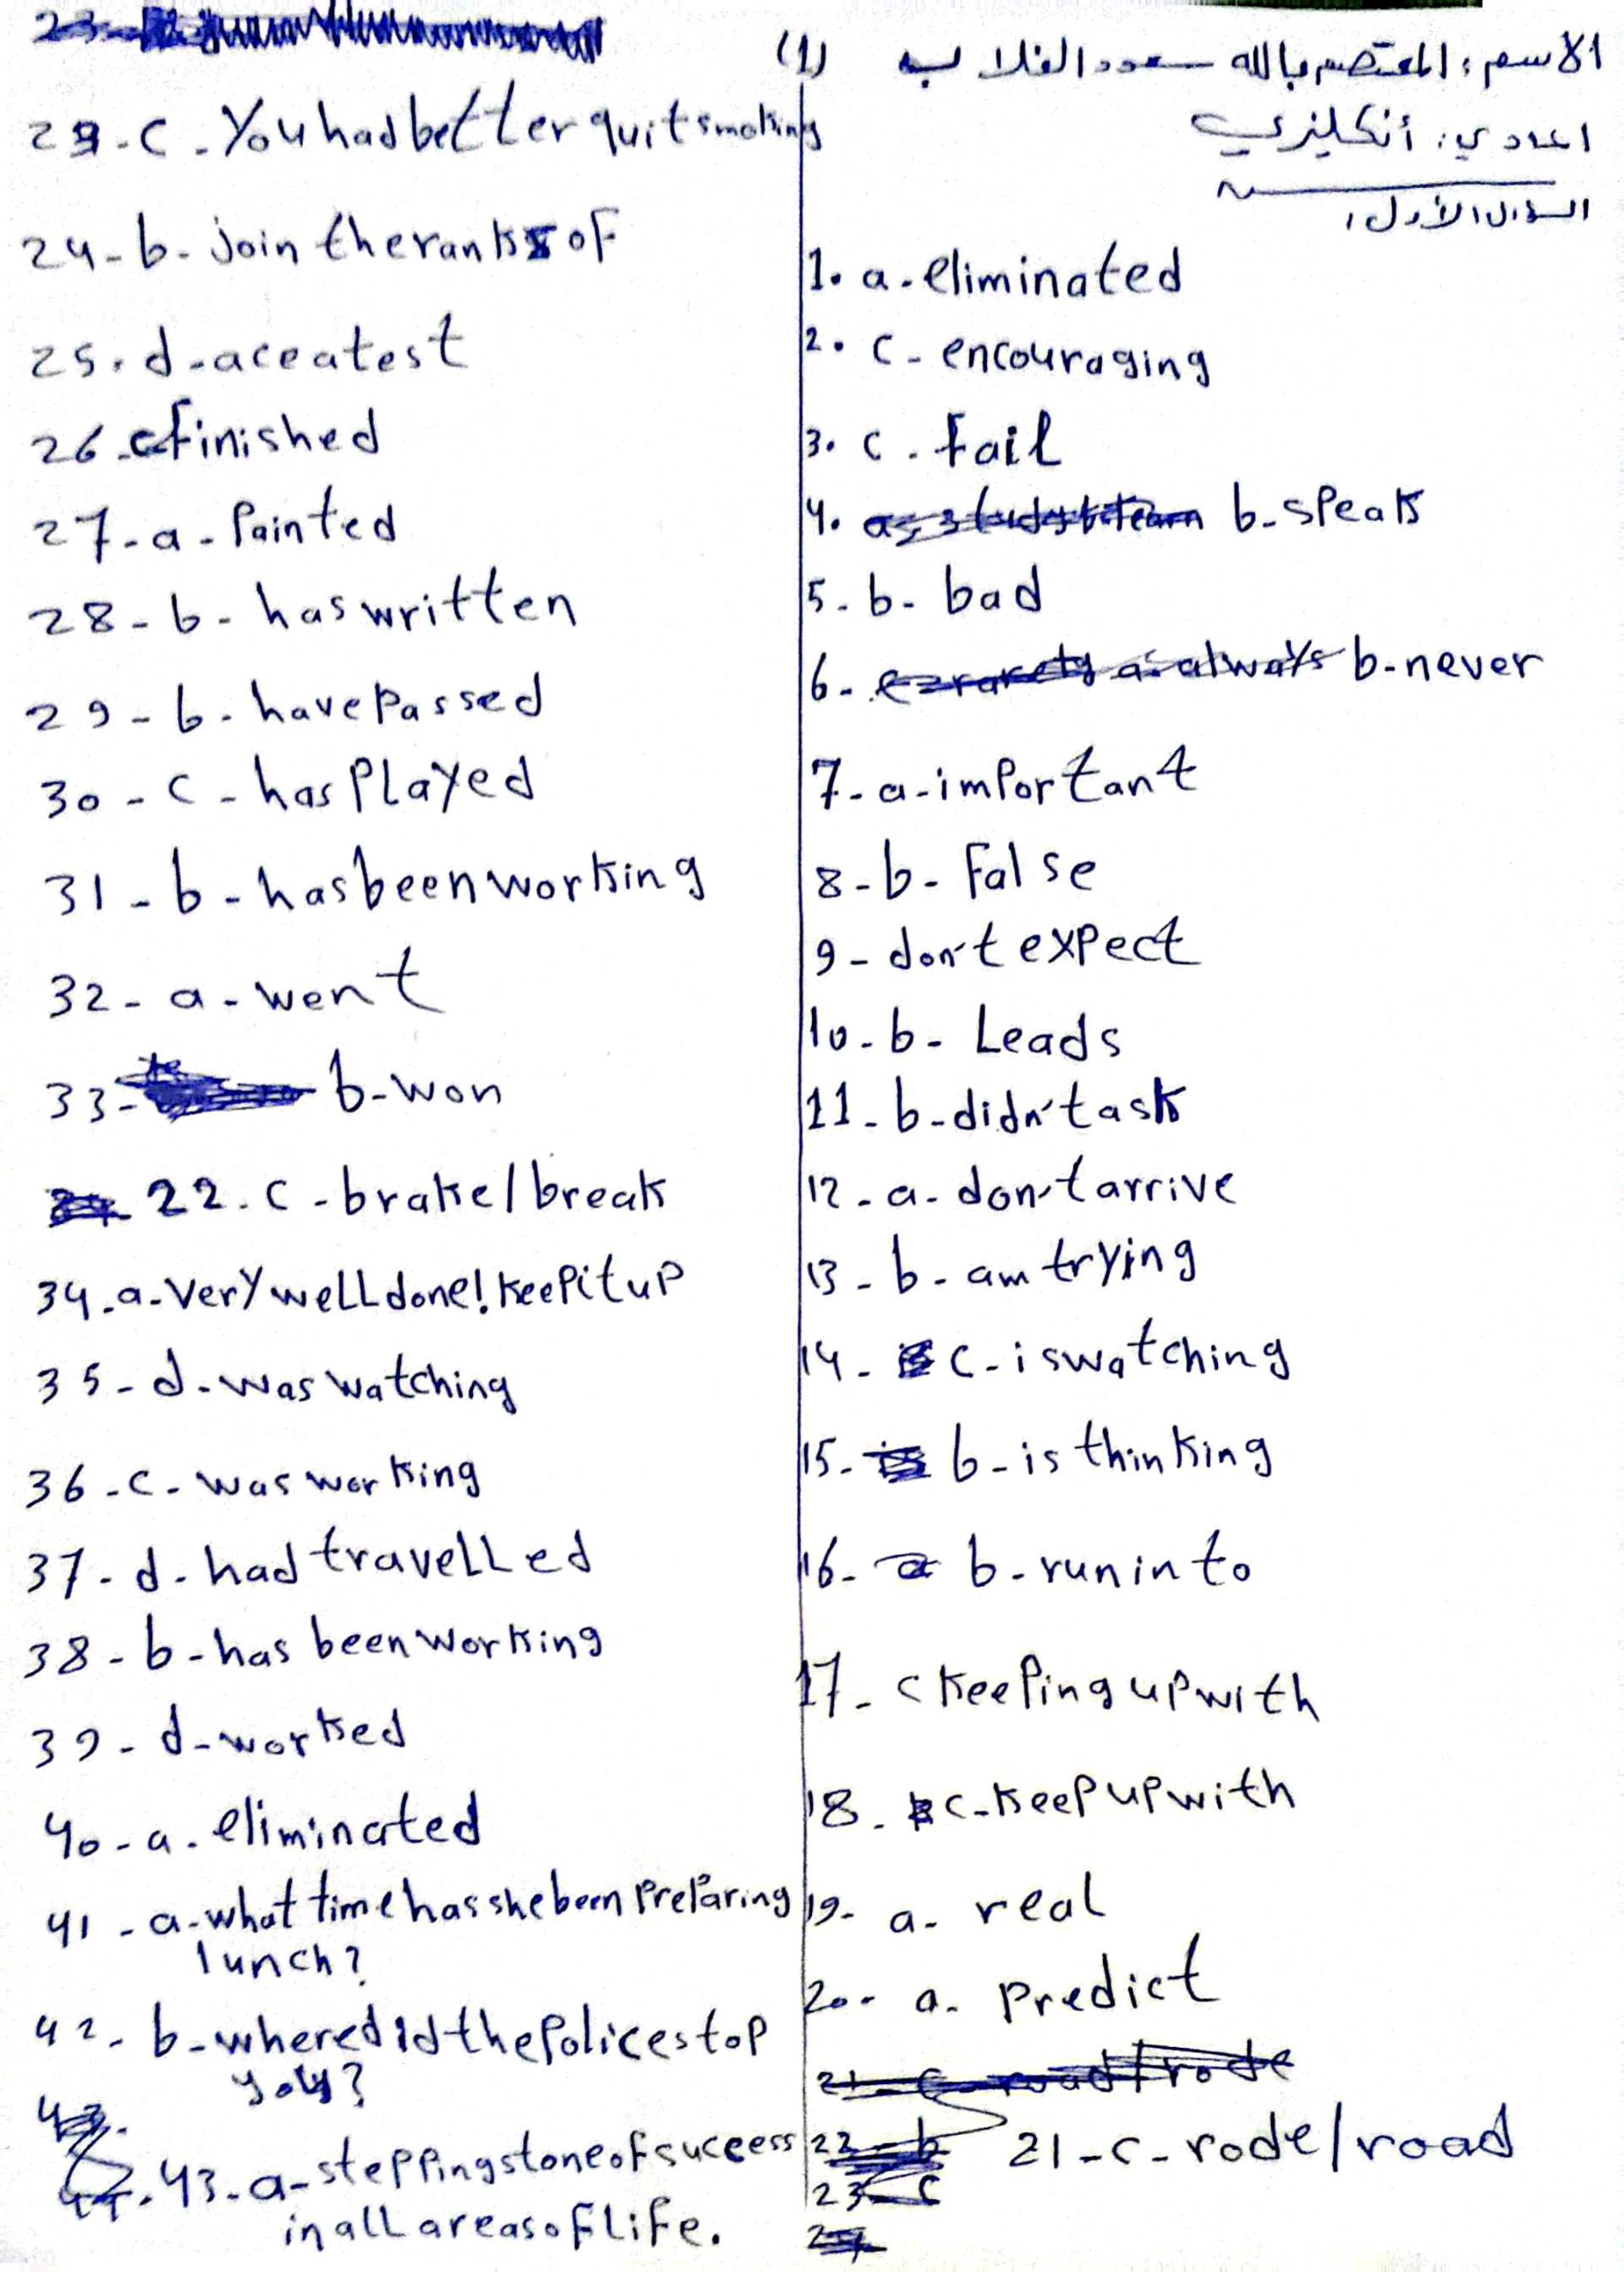 (1)
الاسم: المعتصم بالله سعود الفلاب
اعدادي: أنكليزي
السؤال الأول:
1. a. eliminated
2. c - encouraging
3. c. fail
4. b - speak
5 - b - bad
6 - b - never
7 - a - important
8 - b - False
9 - don't expect
10 - b - Leads
11 - b - didn't ask
12 - a - don't arrive
13 - b - am trying
14 - c - is watching
15 - b - is thinking
16 - b - run in to
17 - c keeping up with
18 - c - keep up with
19 - a - real
20 - a - predict
21 - c - rode/road
23 - c - You had better quit smoking
24 - b - join the ranks of
25 - d - ace a test
26 - c finished
27 - a - Painted
28 - b - has written
29 - b - have Passed
30 - c - has Played
31 - b - has been working
32 - a - went
33 - b - won
22 - c - brake/break
34 - a - Very well done! keep it up
35 - d - was watching
36 - c - was working
37 - d - had travelled
38 - b - has been working
39 - d - worked
40 - a - eliminated
41 - a - what time has she been Preparing
lunch?
42 - b - where did the Police stop
you?
43 - a - stepping stone of success
in all areas of Life.